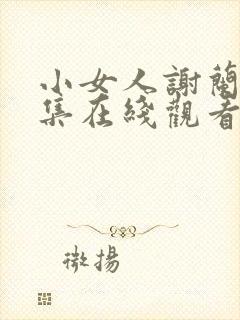 小女人謝蘭
集在綫觀看
微揚